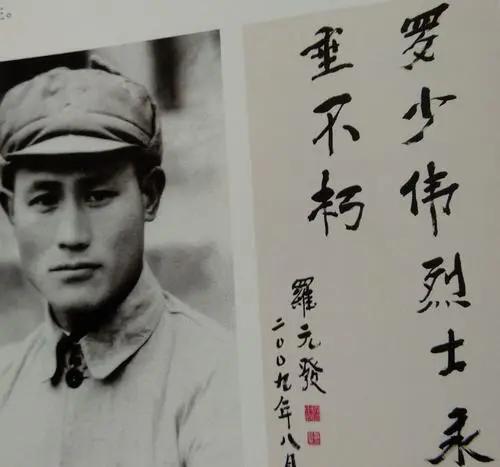 罗少伟烈士永
垂不朽
羅元發
二〇〇九年八月